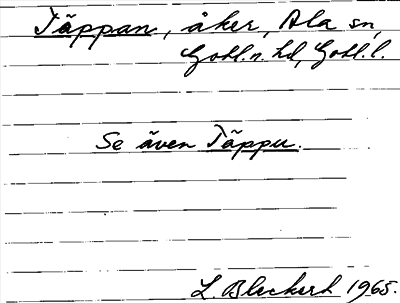 Täppan, åker, Ala sn,
Gotl. n. hd, Gotl. l.
Se även Täppu.
L. Bleckert 1965.